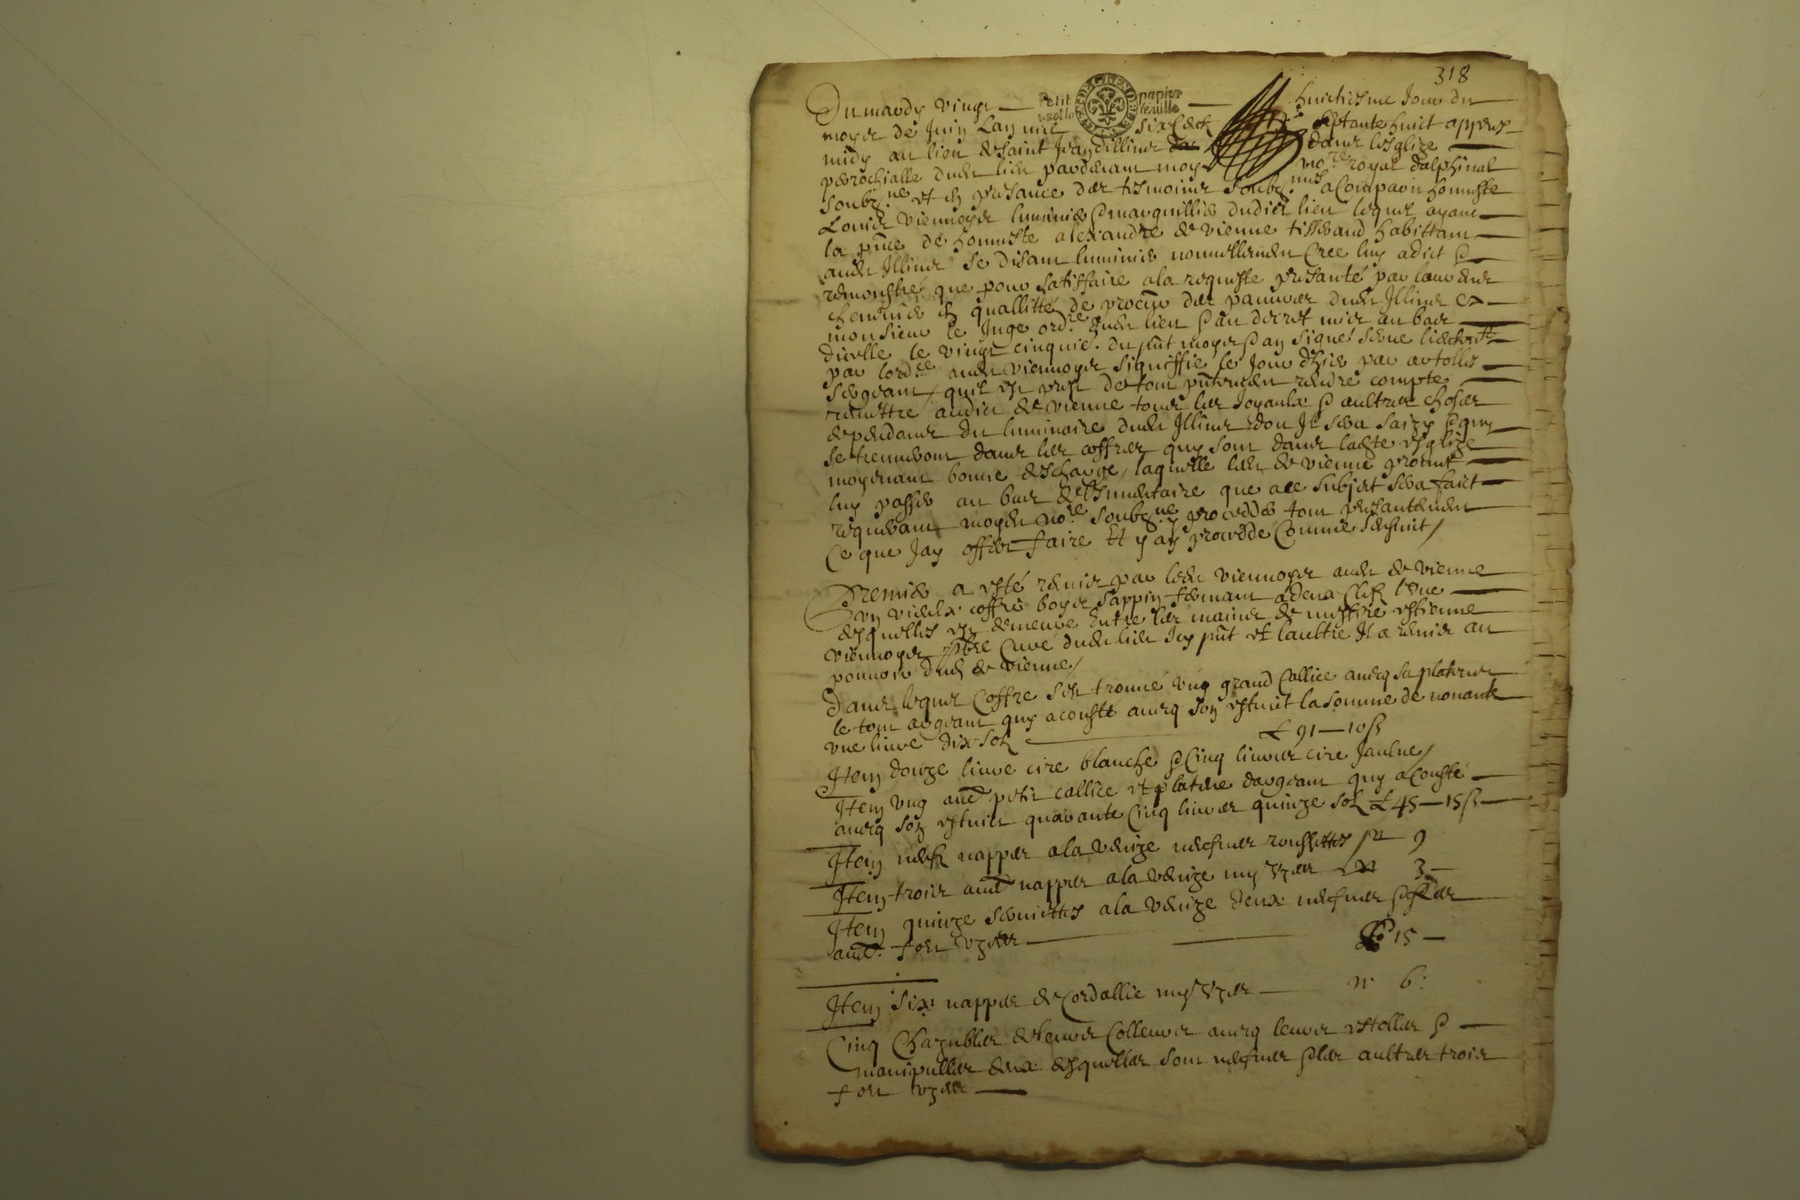 318
Petit papier
feuille
Du mardy vingt huictiesme Jour du
moys de Juin Lan mil six cents septante huict appres
midy au lieu de saint Jean dillins dans lesglize
parrochialle dudit lieu pardevant moy no.re royal dalphinal
soubz.né et en presance des tesmoins soubz.nés a Comparu honneste
Louis viennoys luminier & marguillier dudict lieu lequel ayant
la pñce de honneste alexandre de vienne tisserand habittant
audit Illins se disant luminier nouvellement Cree luy a dict &
remonstré que pour satisfaire a la requeste presanté par
en quallitté de procur des pauvres dudit Illins et
monsieur le Juge ord.re dudit lieu & au decret mis au bas
dicelle le vingt cinquie. du pñt moys & an signé
par audit viennoys signiffié le Jour dhier par
sergeant, quil est prest de tout pñtement rendre compte
remettre audict de vienne tous les Joyaulx & aultres choses
dependants du luminaire dudit Illins dont Il sera saizy & quy
se treuveront dans les coffres quy sont dans ladte esglize
moyenant bonne descharge, laquelle ledit de vienne promet
luy passer au bas de linventaire que a ce subject sera faict
requerant moydit no.re soubz.né y proceder tout presantement
Ce que Jay offert faire Et y ay procedé Comme sensuit /
Premier a esté remis par ledit viennoys audit de vienne
un vieulx coffre boys sappin fermant a deux clefz l'une
desquelles est demeuré entre les mains de messire estienne
viennoys pbre Curé dudit lieu Icy pñt et laultre Il a remis au
pouvoir dudit de vienne /
Dans lequel Coffre sest trouvé ung grand Callice avecq sa platine
le tout argeant quy a cousté avecq son estuit la somme de nonante
une livre dix solz £ 91 — 10 s
Item douze livre cire blanche & Cinq livres cire Jaulne /
Item ung aue petit callice et platine dargeant quy a cousté
avecq son estuict quarante Cinq livres quinze solz £ 45 — 15 s
Item neufz nappes a la venize neufves roussettes n 9
Item trois aue nappes a la venize my uzes n 3
Item quinze serviettes a la venize deux neufves & les
aue fort uzees 15
Item six nappes de Cordallie my uzes n 6
Cinq Chazubles de Couleurs avecq leurs estolles &
manipulles deux desquelles sont neufves & les aultres trois
fort uzees